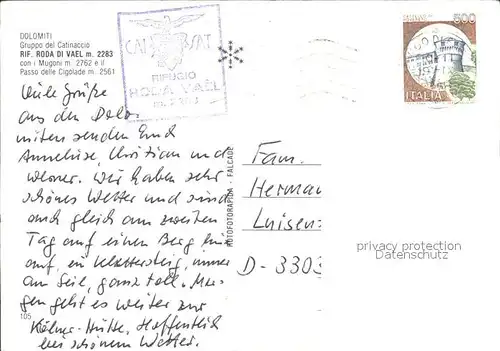 DOLOMITI
Gruppo del Catinaccio
RIF. RODA DI VAEL m. 2283
con i Mugoni m. 2762 e il
Passo delle Cigolade m. 2561
CAI SAT
RIFUGIO
RODA VAEL
500
ITALIA
Viele Grüße
aus den Dolo-
miten senden Euch
Annelise, Christian und
Werner. Wir haben sehr
schönes Wetter und sind
auch gleich am zweiten
Tag auf einen Berg hin-
auf, ein Klettersteig, immer
am Seil, ganz toll. Mor-
gen geht es weiter zur
Kölner-Hütte. Hoffentlich
bei schönem Wetter.
105
ROTOFOTORAPIDA - FALCADE
Fam.
Herman
Luisens
D-3303
privacy protection
Datenschutz